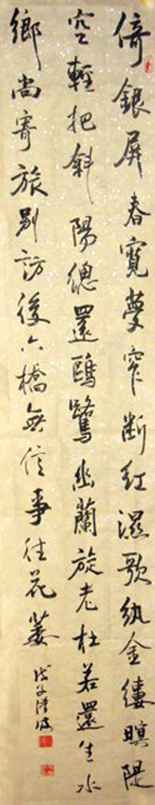 倚銀屏春寬夢窄斷紅濕歌紈金縷暝隄
空輕把斜陽總還鷗鷺幽蘭旋老杜若還生水
鄉尚寄旅別訪後六橋無信事往花萎
戊子